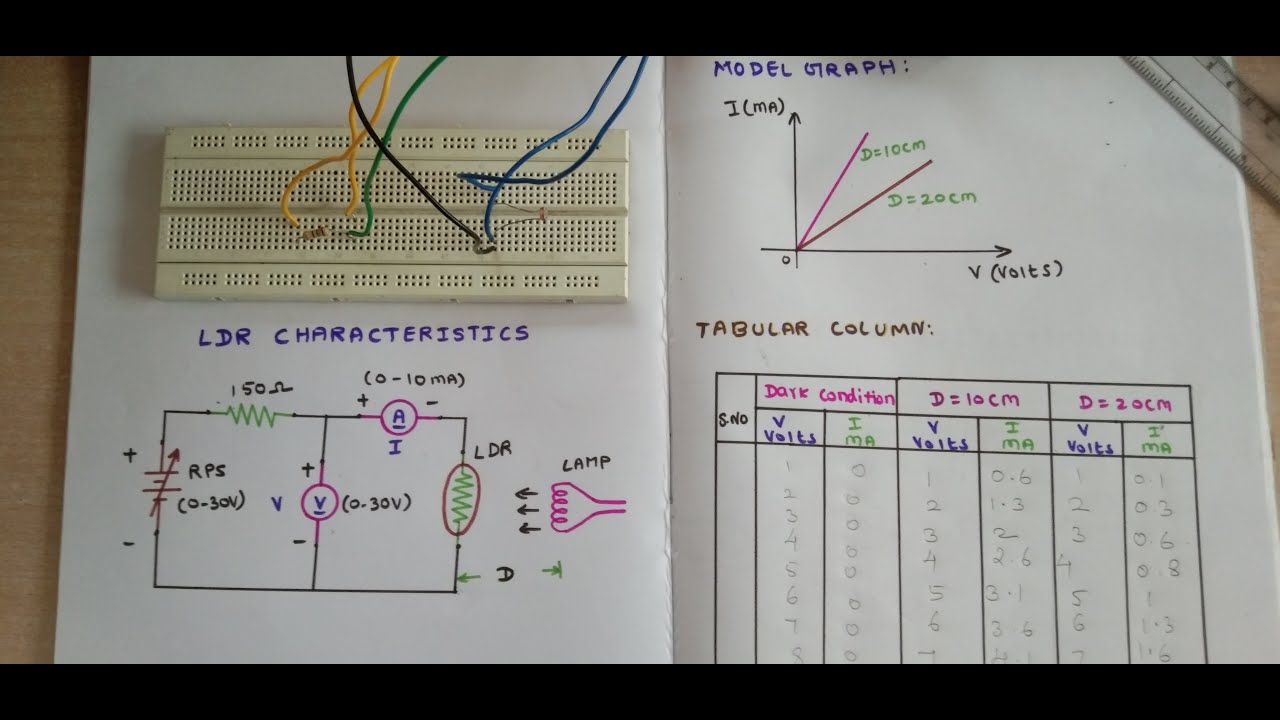 LDR CHARACTERISTICS
150Ω
(0-10mA)
+ -
A
I
+
RPS
(0-30V)
-
V
+
V
(0-30V)
-
LDR
LAMP
D
MODEL GRAPH:
I(mA)
D=10cm
D=20cm
0
V (Volts)
TABULAR COLUMN:
S.NO Dark condition D=10cm D=20cm
V Volts I mA V Volts I mA V Volts I mA
1 0 1 0.6 1 0.1
2 0 2 1.3 2 0.3
3 0 3 2 3 0.6
4 0 4 2.6 4 0.8
5 0 5 3.1 5 1
6 0 6 3.6 6 1.3
7 0 7 7 1.6
8 0